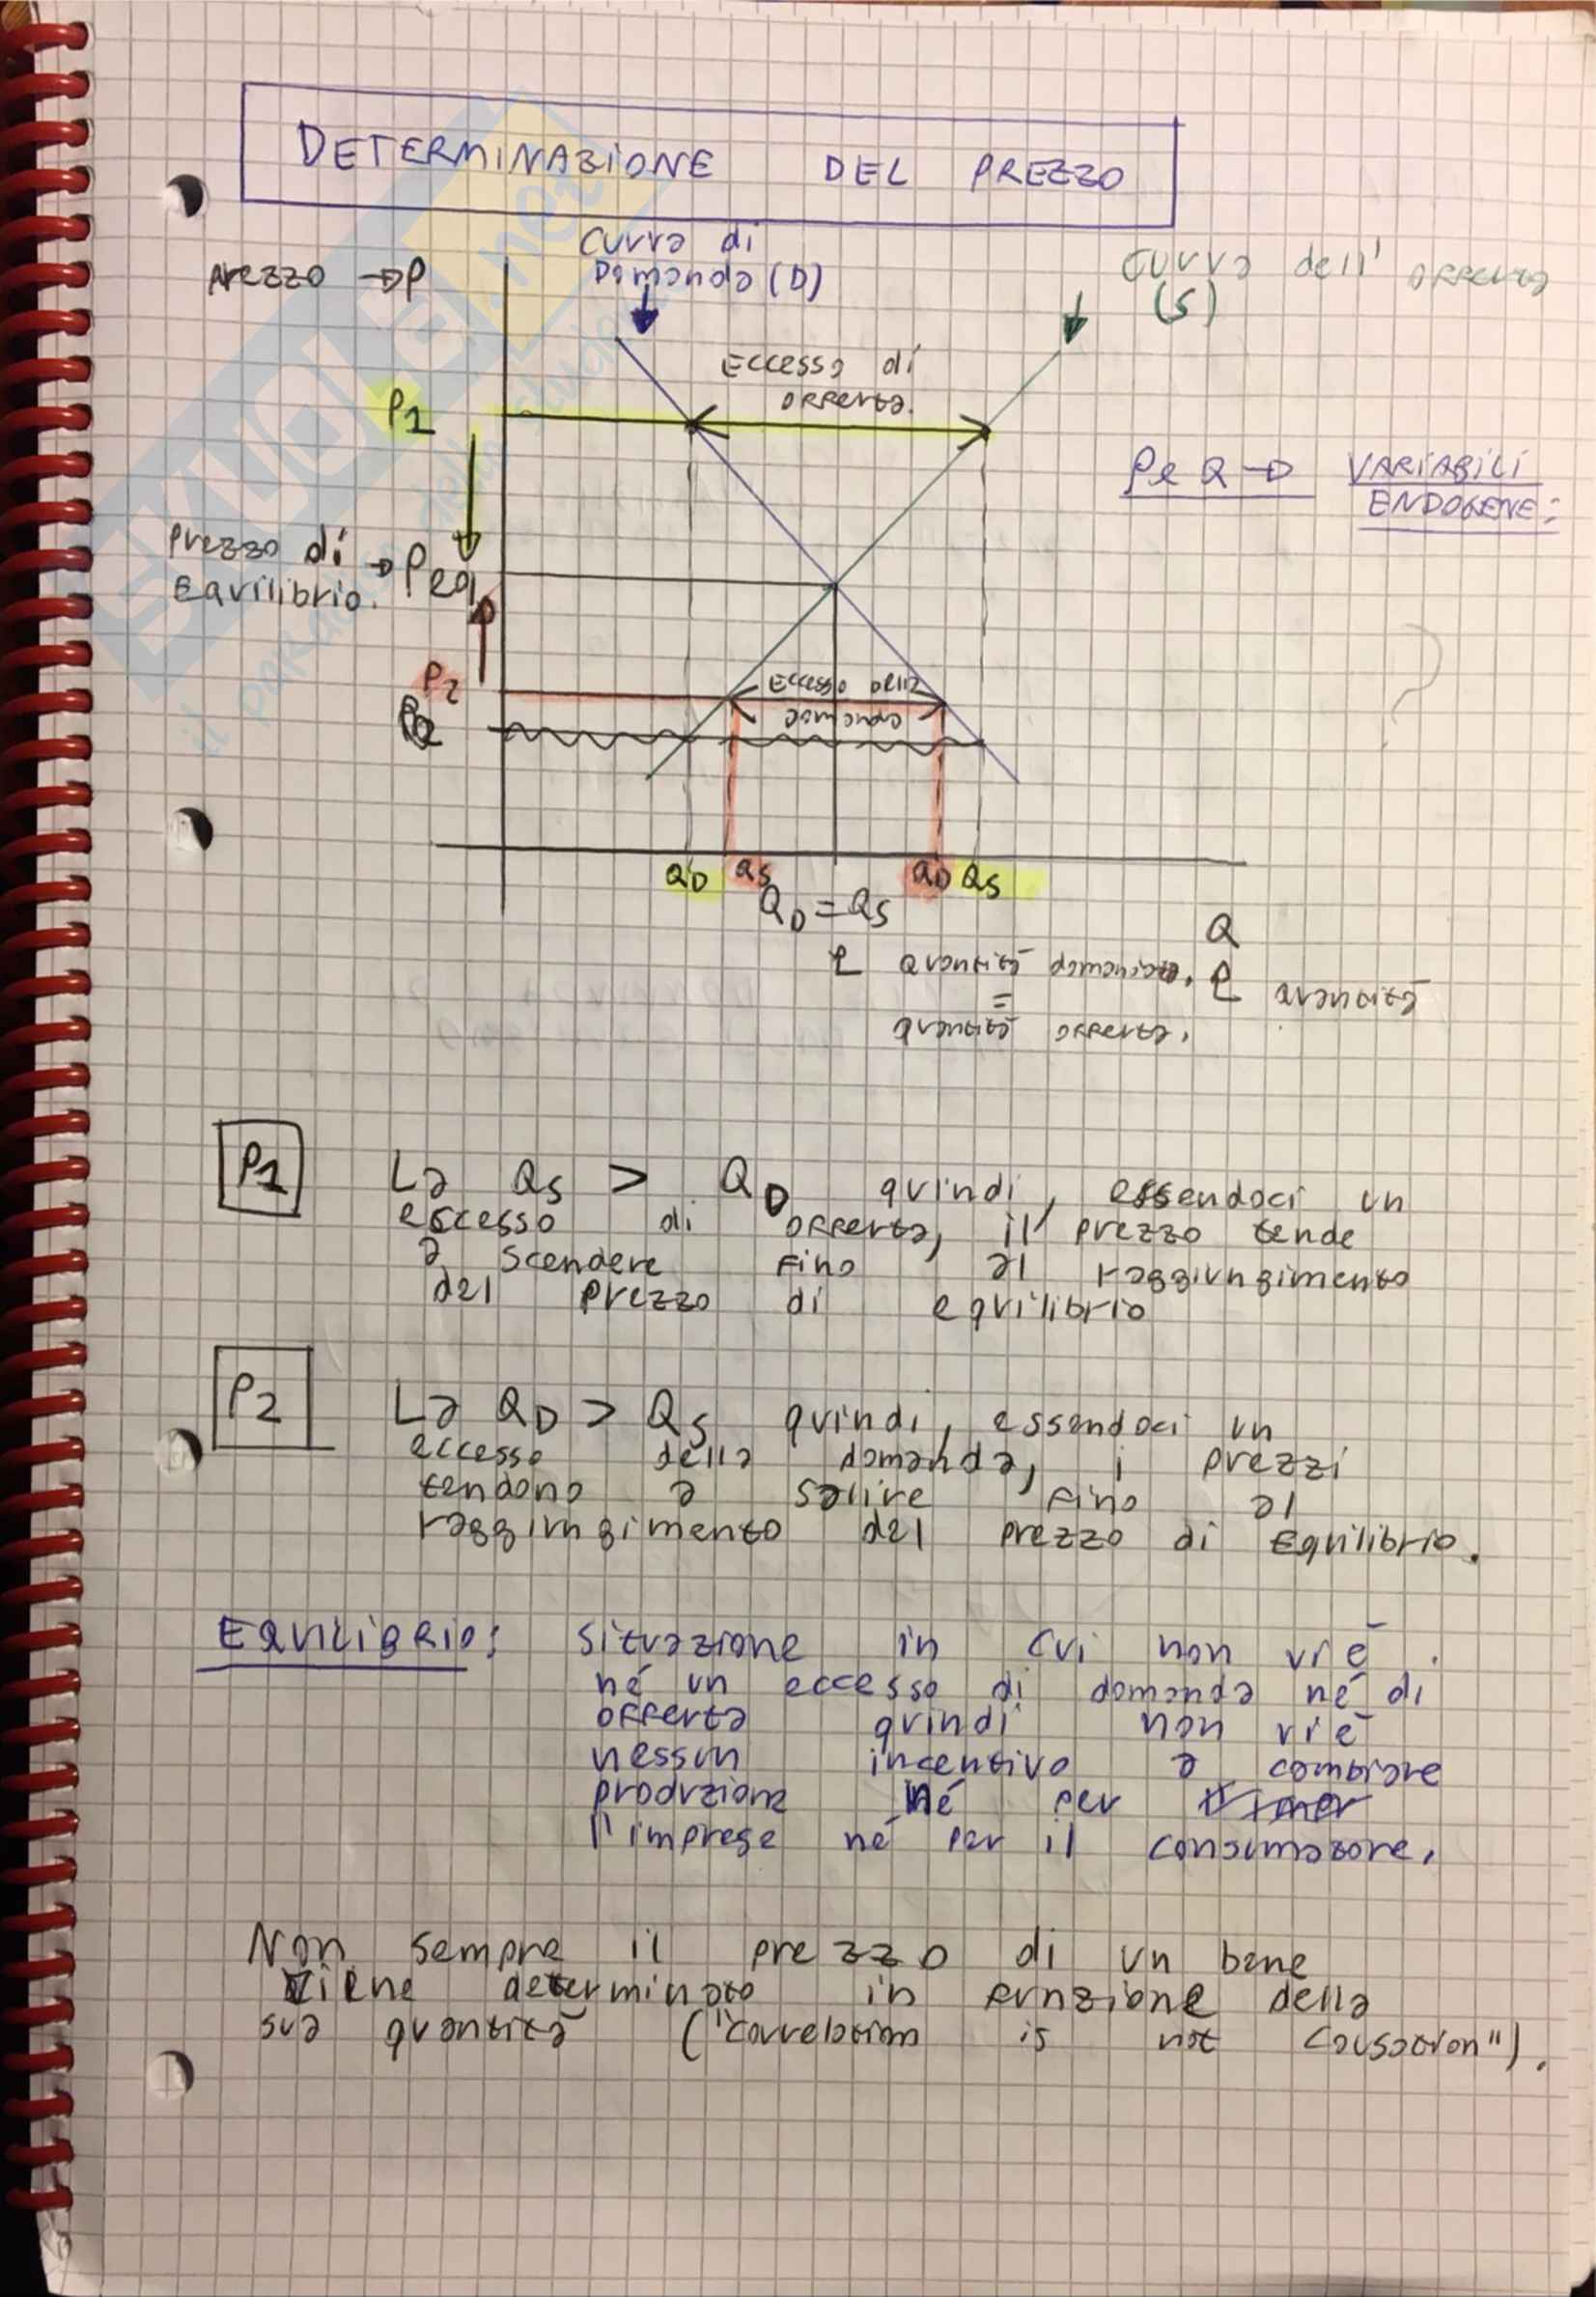 DETERMINAZIONE DEL PREZZO
Curva di
Domanda (D)
Prezzo → P
Curva dell' offerta
(S)
Eccesso di
offerta.
P1
P e Q → VARIABILI
ENDOGENE:
Prezzo di
Equilibrio. → Peq
P2
Eccesso della
domanda
QD QS QD QS
QD = QS
Q
quantità domandata. quantità
=
quantità offerta.
?
P1
La QS > QD quindi, essendoci un
eccesso di offerta, il prezzo tende
a scendere fino al raggiungimento
del prezzo di equilibrio
P2
La QD > QS quindi, essendoci un
eccesso della domanda, i prezzi
tendono a salire fino al
raggiungimento del prezzo di Equilibrio.
EQUILIBRIO: situazione in cui non vi è
né un eccesso di domanda né di
offerta quindi non vi è
nessun incentivo a cambiare
produzione né per
l'imprese né per il consumatore.
Non sempre il prezzo di un bene
viene determinato in funzione della
sua quantità ("correlation is not causation").
SKUOLA.net